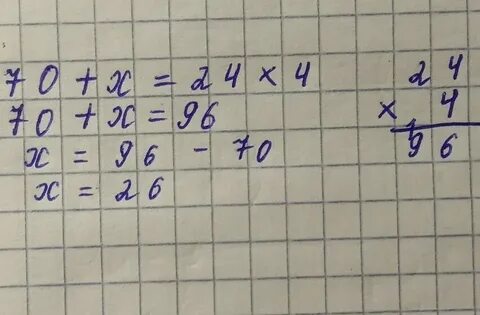 70 + x = 24 × 4
70 + x = 96
x = 96 - 70
x = 26
24
× 4
96